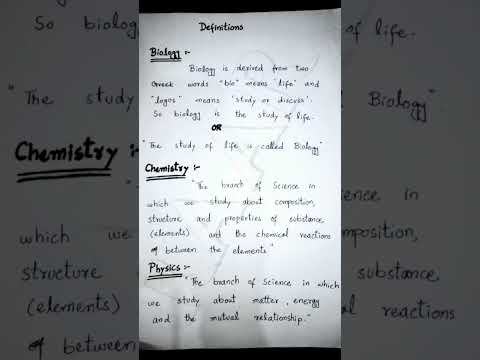 Definitions
Biology :-
Biology is derived from two
Greek words "bio" means "life" and
"logos" means "study or discuss".
So biology is the study of life.
OR
"The study of life is called Biology"
Chemistry :-
"The branch of Science in
which we study about composition,
structure and properties of substance
(elements) and the chemical reactions
of between the elements"
Physics :-
"The branch of Science in which
we study about matter, energy
and the mutual relationship."
"The study
Chemistry :-
which we
structure
(elements)
of between
life.
Biology"
ience in
mposition,
substance
reactions